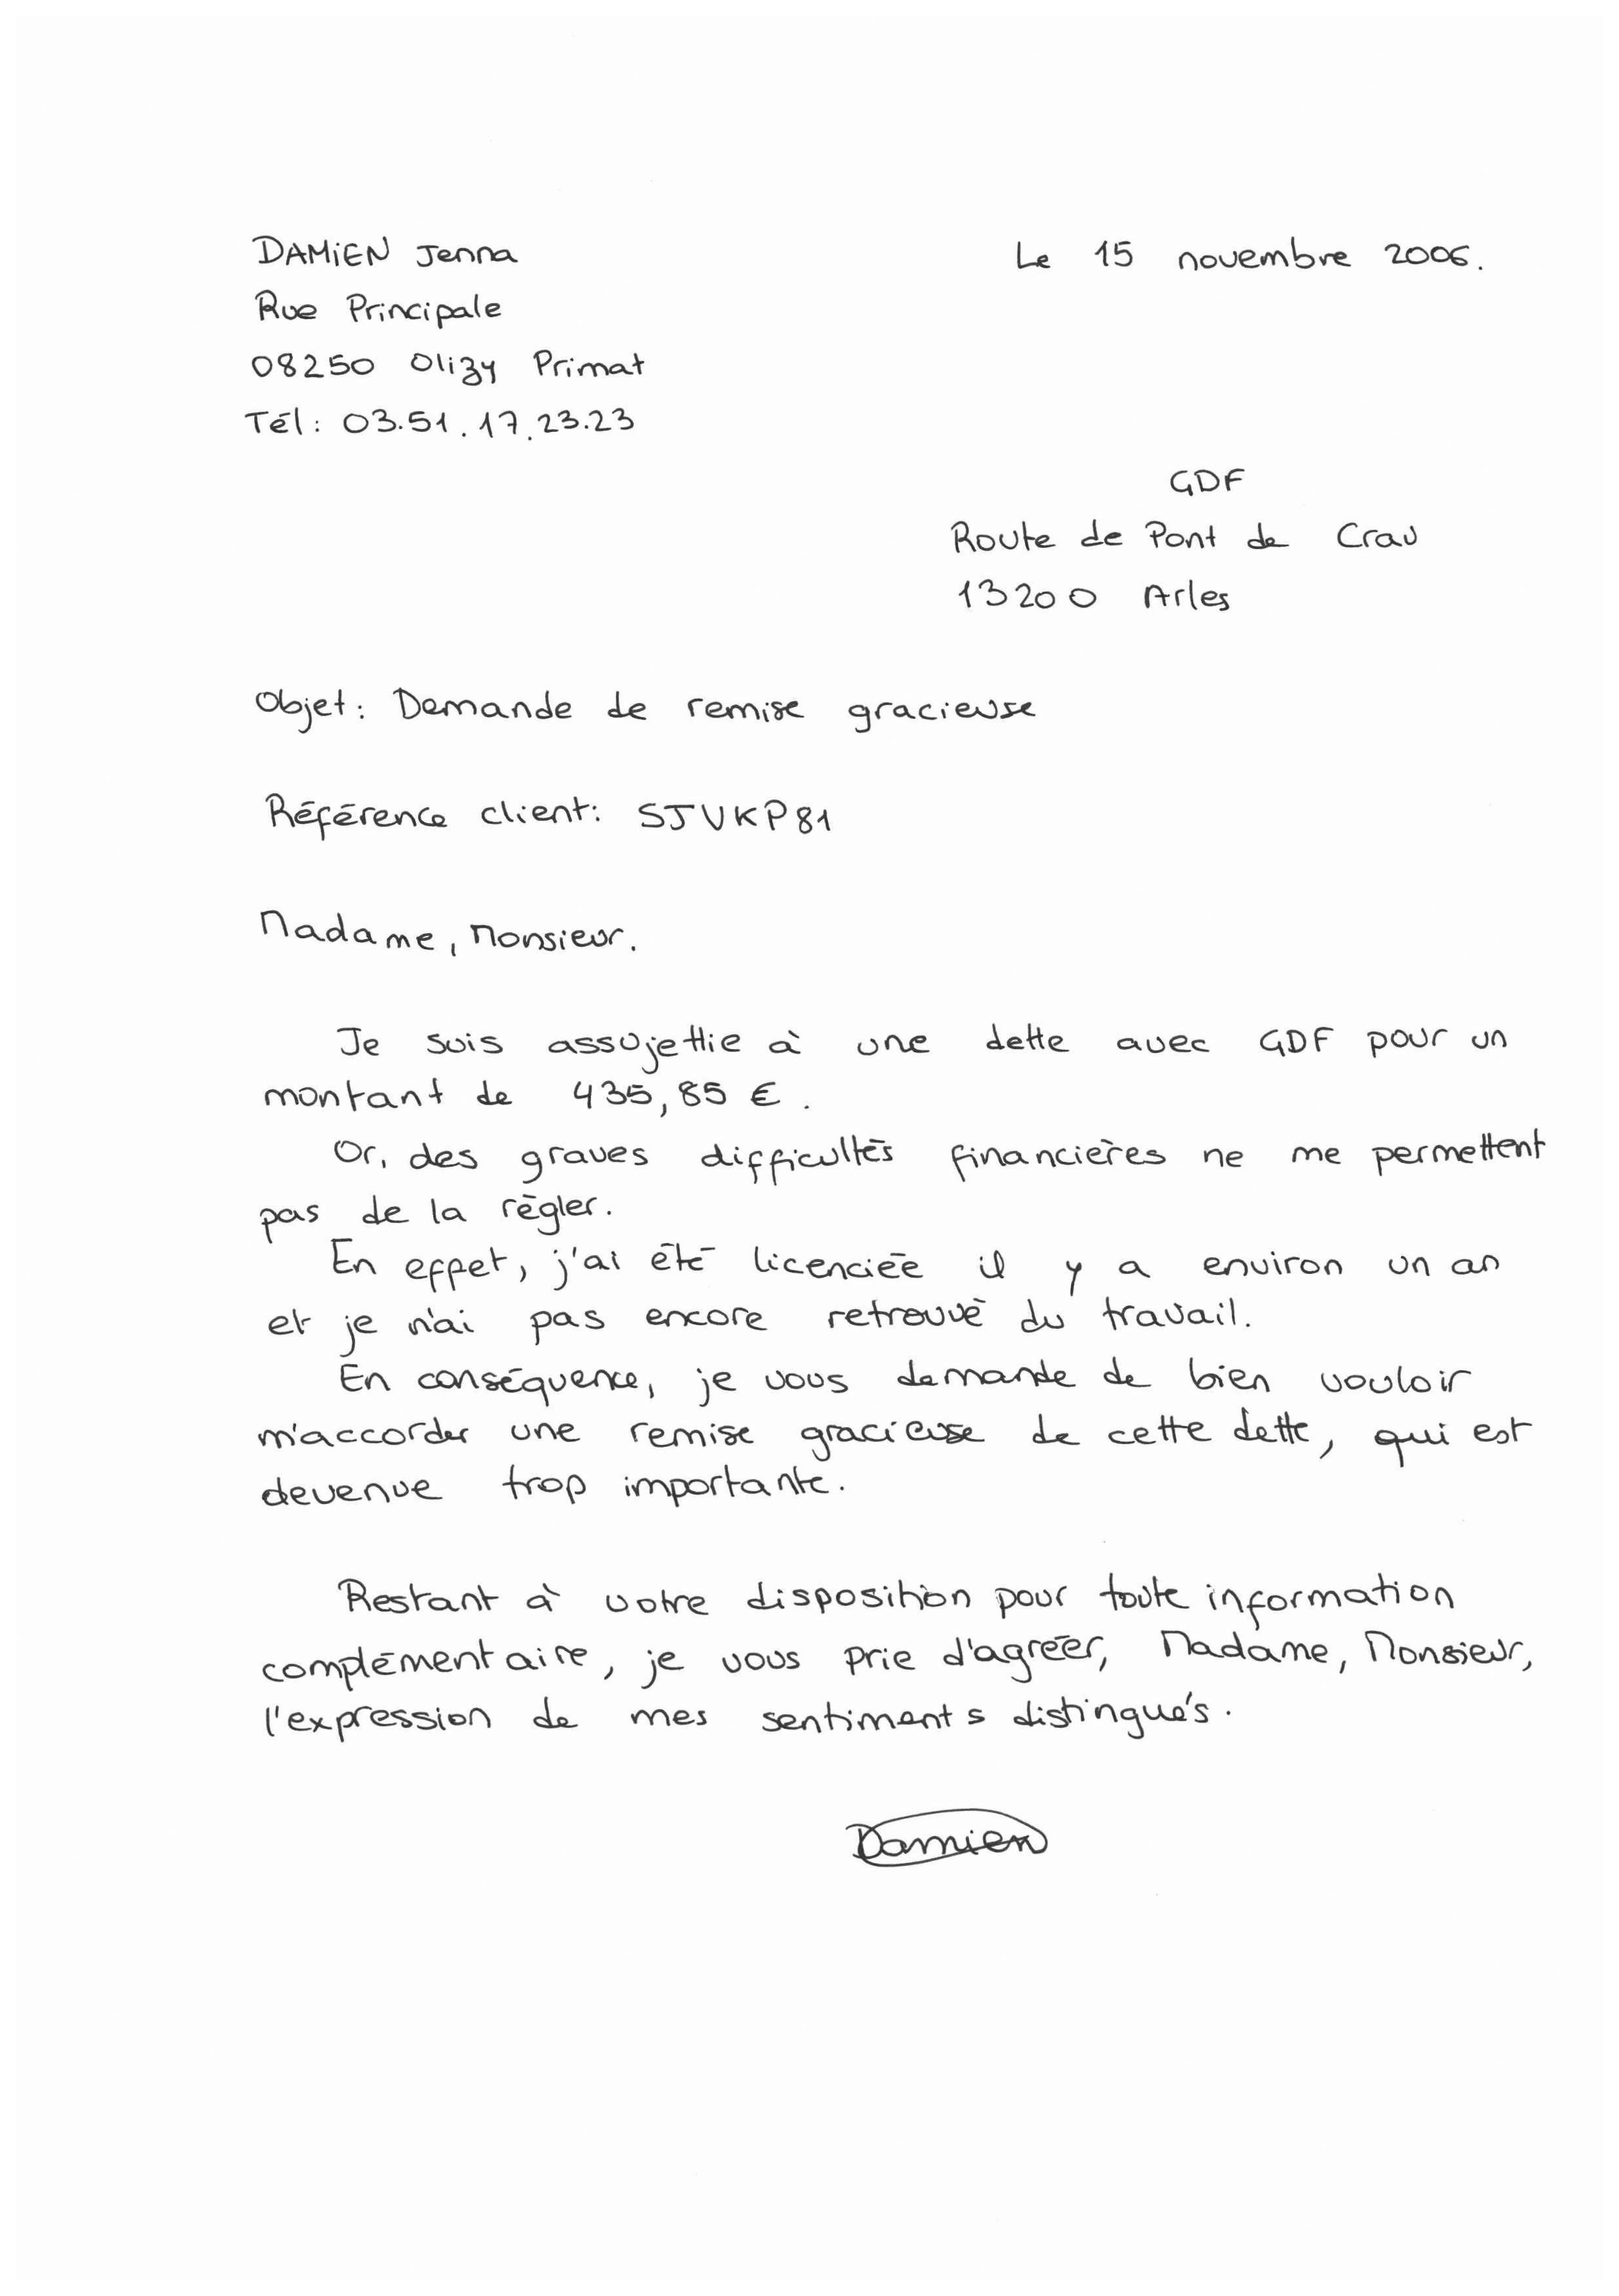 DAMiEN Jenna
Le 15 novembre 2006.
Rue Principale
08250 Olizy Primat
Tél : 03.51.17.23.23
GDF
Route de Pont de Crau
13200 Arles
Objet : Demande de remise gracieuse
Référence client : SJVKP81
Madame, Monsieur.
Je suis assujettie à une dette avec GDF pour un
montant de 435,85 €.
Or, des graves difficultés financières ne me permettent
pas de la régler.
En effet, j'ai été licenciée il y a environ un an
et je n'ai pas encore retrouvé du travail.
En conséquence, je vous demande de bien vouloir
m'accorder une remise gracieuse de cette dette, qui est
devenue trop importante.
Restant à votre disposition pour toute information
complémentaire, je vous prie d'agréer, Madame, Monsieur,
l'expression de mes sentiments distingués.
Damien